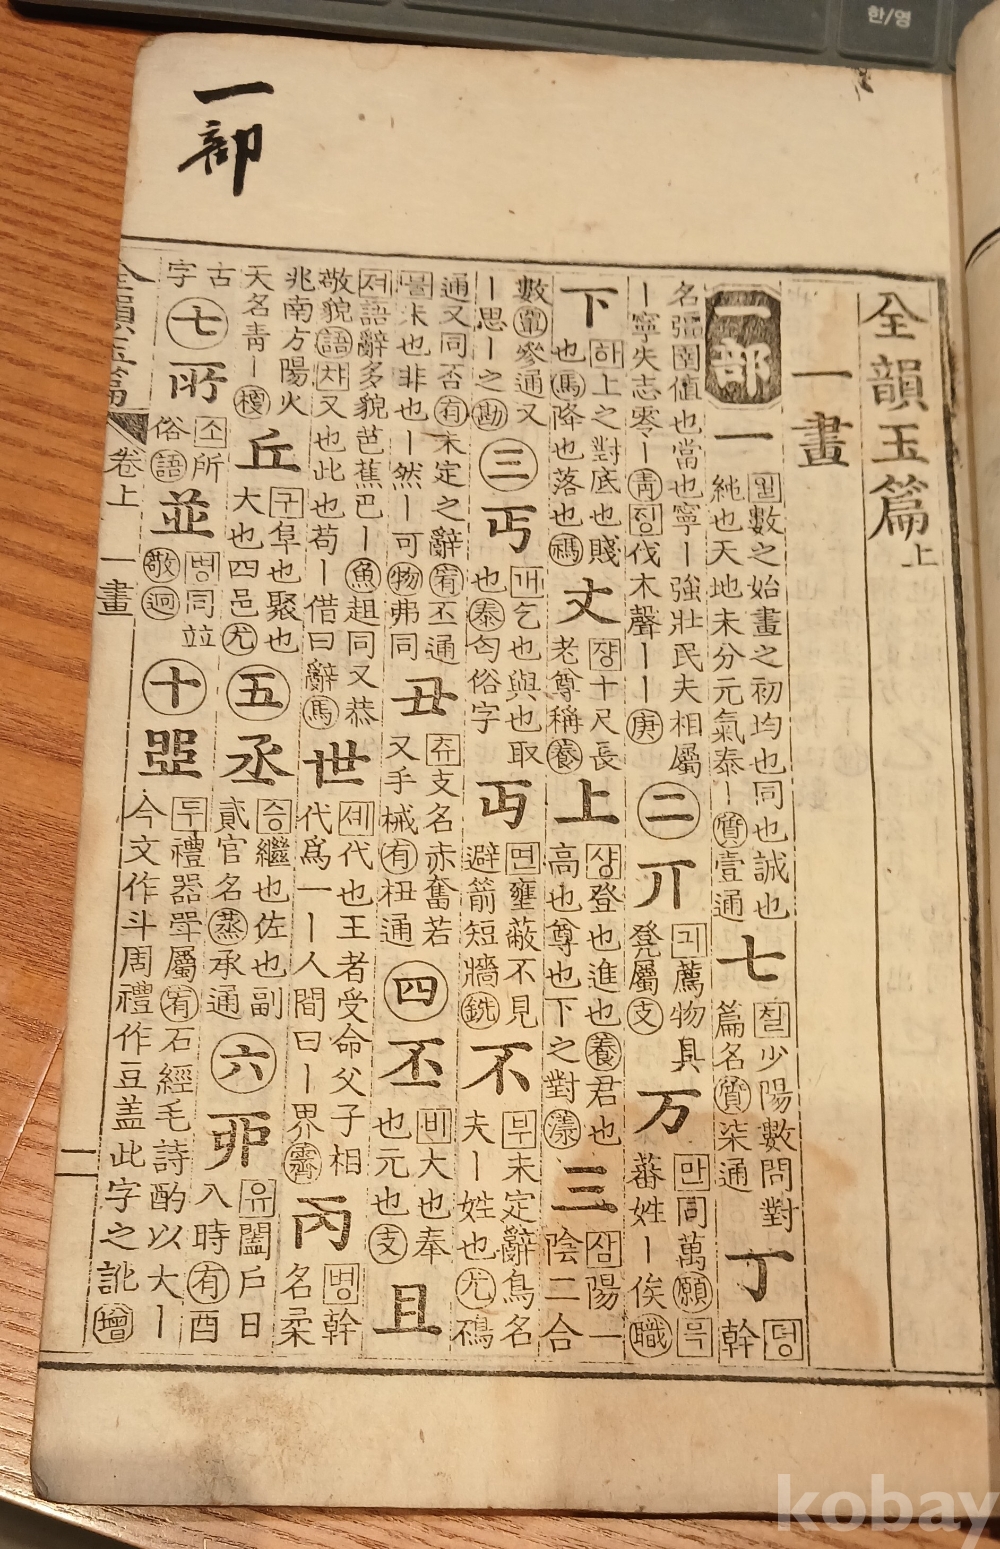 한/영
一部
全韻玉篇上
一畫
一部 一 일 數之始畫之初均也同也誠也純也天地未分元氣泰丨質壹通 七 칠 少陽數問對篇名質柒通 丁 뎡 幹
名彊圉値也當也寧丨強壯民夫相屬丨寧失志零丨靑징伐木聲丨丨庚 二 丌 긔 薦物具凳屬支 万 만 同萬願믁蕃姓丨俟職
下 하 上之對底也賤也馬降也落也禡 丈 쟝 十尺長老尊稱養 上 샹 登也進也養君也高也尊也下之對漾 三 삼 陽一陰二合
數覃參通又丨思丨之勘 三 丐 개 乞也與也取也泰匄俗字 丏 면 壅蔽不見避箭短牆銑 不 부 未定辭鳥名夫丨姓也尤鳺
通又同否有未定之辭宥丕通불未也非也丨然丨可物弗同 丑 츄 支名赤奮若又手械有杻通 四 丕 비 大也奉也元也支 且
저 語辭多貌芭蕉巴丨魚趄同又恭敬貌語차又也此也苟丨借曰辭馬 世 셰 代也王者受命父子相代爲一丨人間曰丨界霽 丙 병 幹名柔
兆南方陽火天名靑丨梗 丘 구 阜也聚也大也四邑尤 五 丞 승 繼也佐也副貳官名蒸承通 六 丣 유 闔戶日入時有酉
古字 七 소 所俗語 並 병 同竝敬迥 十 두 禮器斝屬宥石經毛詩酌以大丨今文作斗周禮作豆盖此字之訛增
全韻玉篇 卷上 一畫 二
kobay